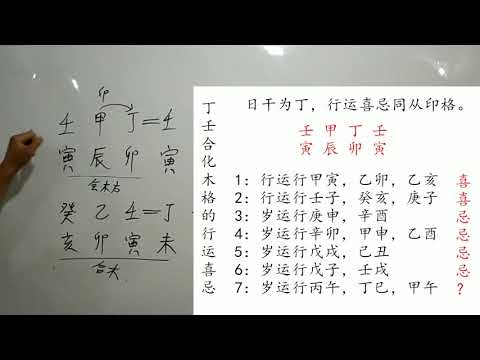 印
壬 甲 丁=壬
寅 辰 卯 寅
会木方
癸 乙 壬=丁
亥 卯 寅 未
合木
丁壬合化木格的行运喜忌
日干为丁，行运喜忌同从印格。
壬 甲 丁 壬
寅 辰 卯 寅
1：行运行甲寅，乙卯，乙亥 喜
2：行运行壬子，癸亥，庚子 喜
3：岁运行庚申，辛酉 忌
4：岁运行辛卯，甲申，乙酉 忌
5：岁运行戊戌，己丑 忌
6：岁运行戊子，壬戌 忌
7：岁运行丙午，丁巳，甲午 ？